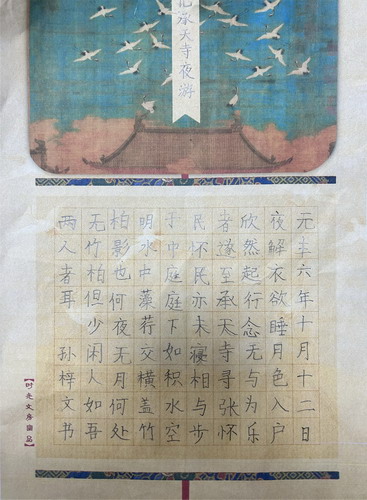 记承天寺夜游
元丰六年十月十二日
夜解衣欲睡月色入户
欣然起行念无与为乐
者遂至承天寺寻张怀
民怀民亦未寝相与步
于中庭庭下如积水空
明水中藻荇交横盖竹
柏影也何夜无月何处
无竹柏但少闲人如吾
两人者耳 孙梓文书